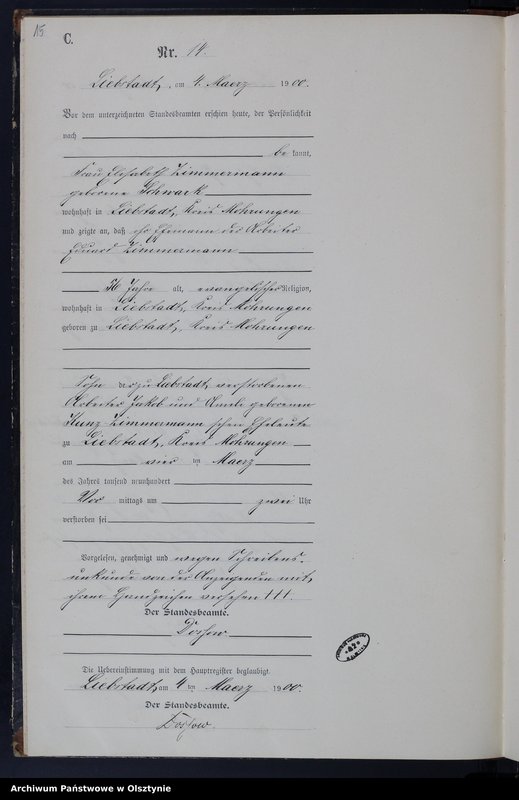 15.
C.
Nr. 14.
Liebstadt, am 4. Maerz 1900.
Vor dem unterzeichneten Standesbeamten erschien heute, der Persönlichkeit
nach
be kannt,
Frau Elisabeth Zimmermann
geborene Schwark
wohnhaft in Liebstadt, Kreis Mohrungen
und zeigte an, daß ihr Ehemann der Arbeiter
Eduard Zimmermann
Jahre alt, evangelischer Religion,
wohnhaft in Liebstadt, Kreis Mohrungen
geboren zu Liebstadt, Kreis Mohrungen
Sohn der zu Liebstadt, verstorbenen
Arbeiter Jakob und geborenen
Kunz Zimmermann'schen Eheleute
zu Liebstadt, Kreis Mohrungen
am vier ten Maerz
des Jahres tausend neunhundert
Vor mittags um zwei Uhr
verstorben sei
Vorgelesen, genehmigt und wegen Schreibens-
unkunde von der Anzeigenden mit
ihrem Handzeichen versehen †††.
Der Standesbeamte.
Die Uebereinstimmung mit dem Hauptregister beglaubigt.
Liebstadt, am 4 ten Maerz 1900.
Der Standesbeamte.
Archiwum Państwowe w Olsztynie